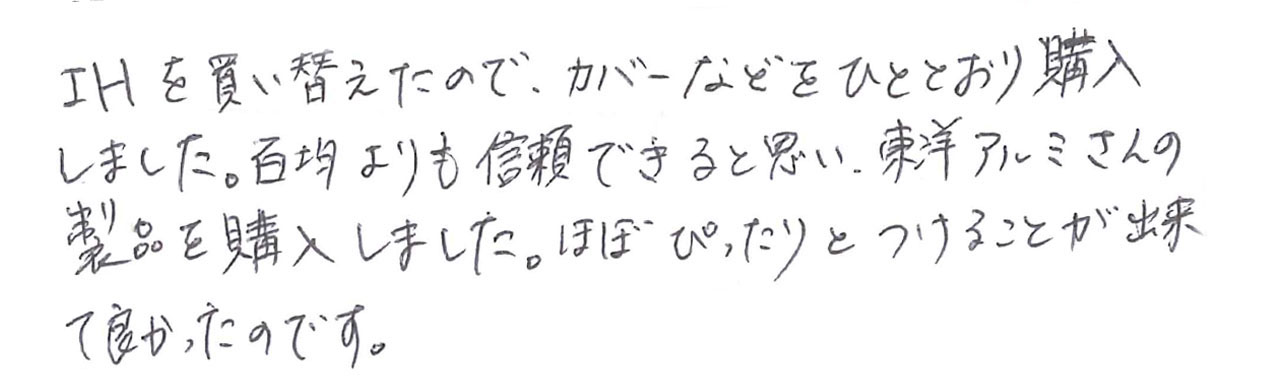 IHを買い替えたので、カバーなどをひととおり購入
しました。百均よりも信頼できると思い、東洋アルミさんの
製品を購入しました。ほぼぴったりとつけることが出来
て良かったのです。